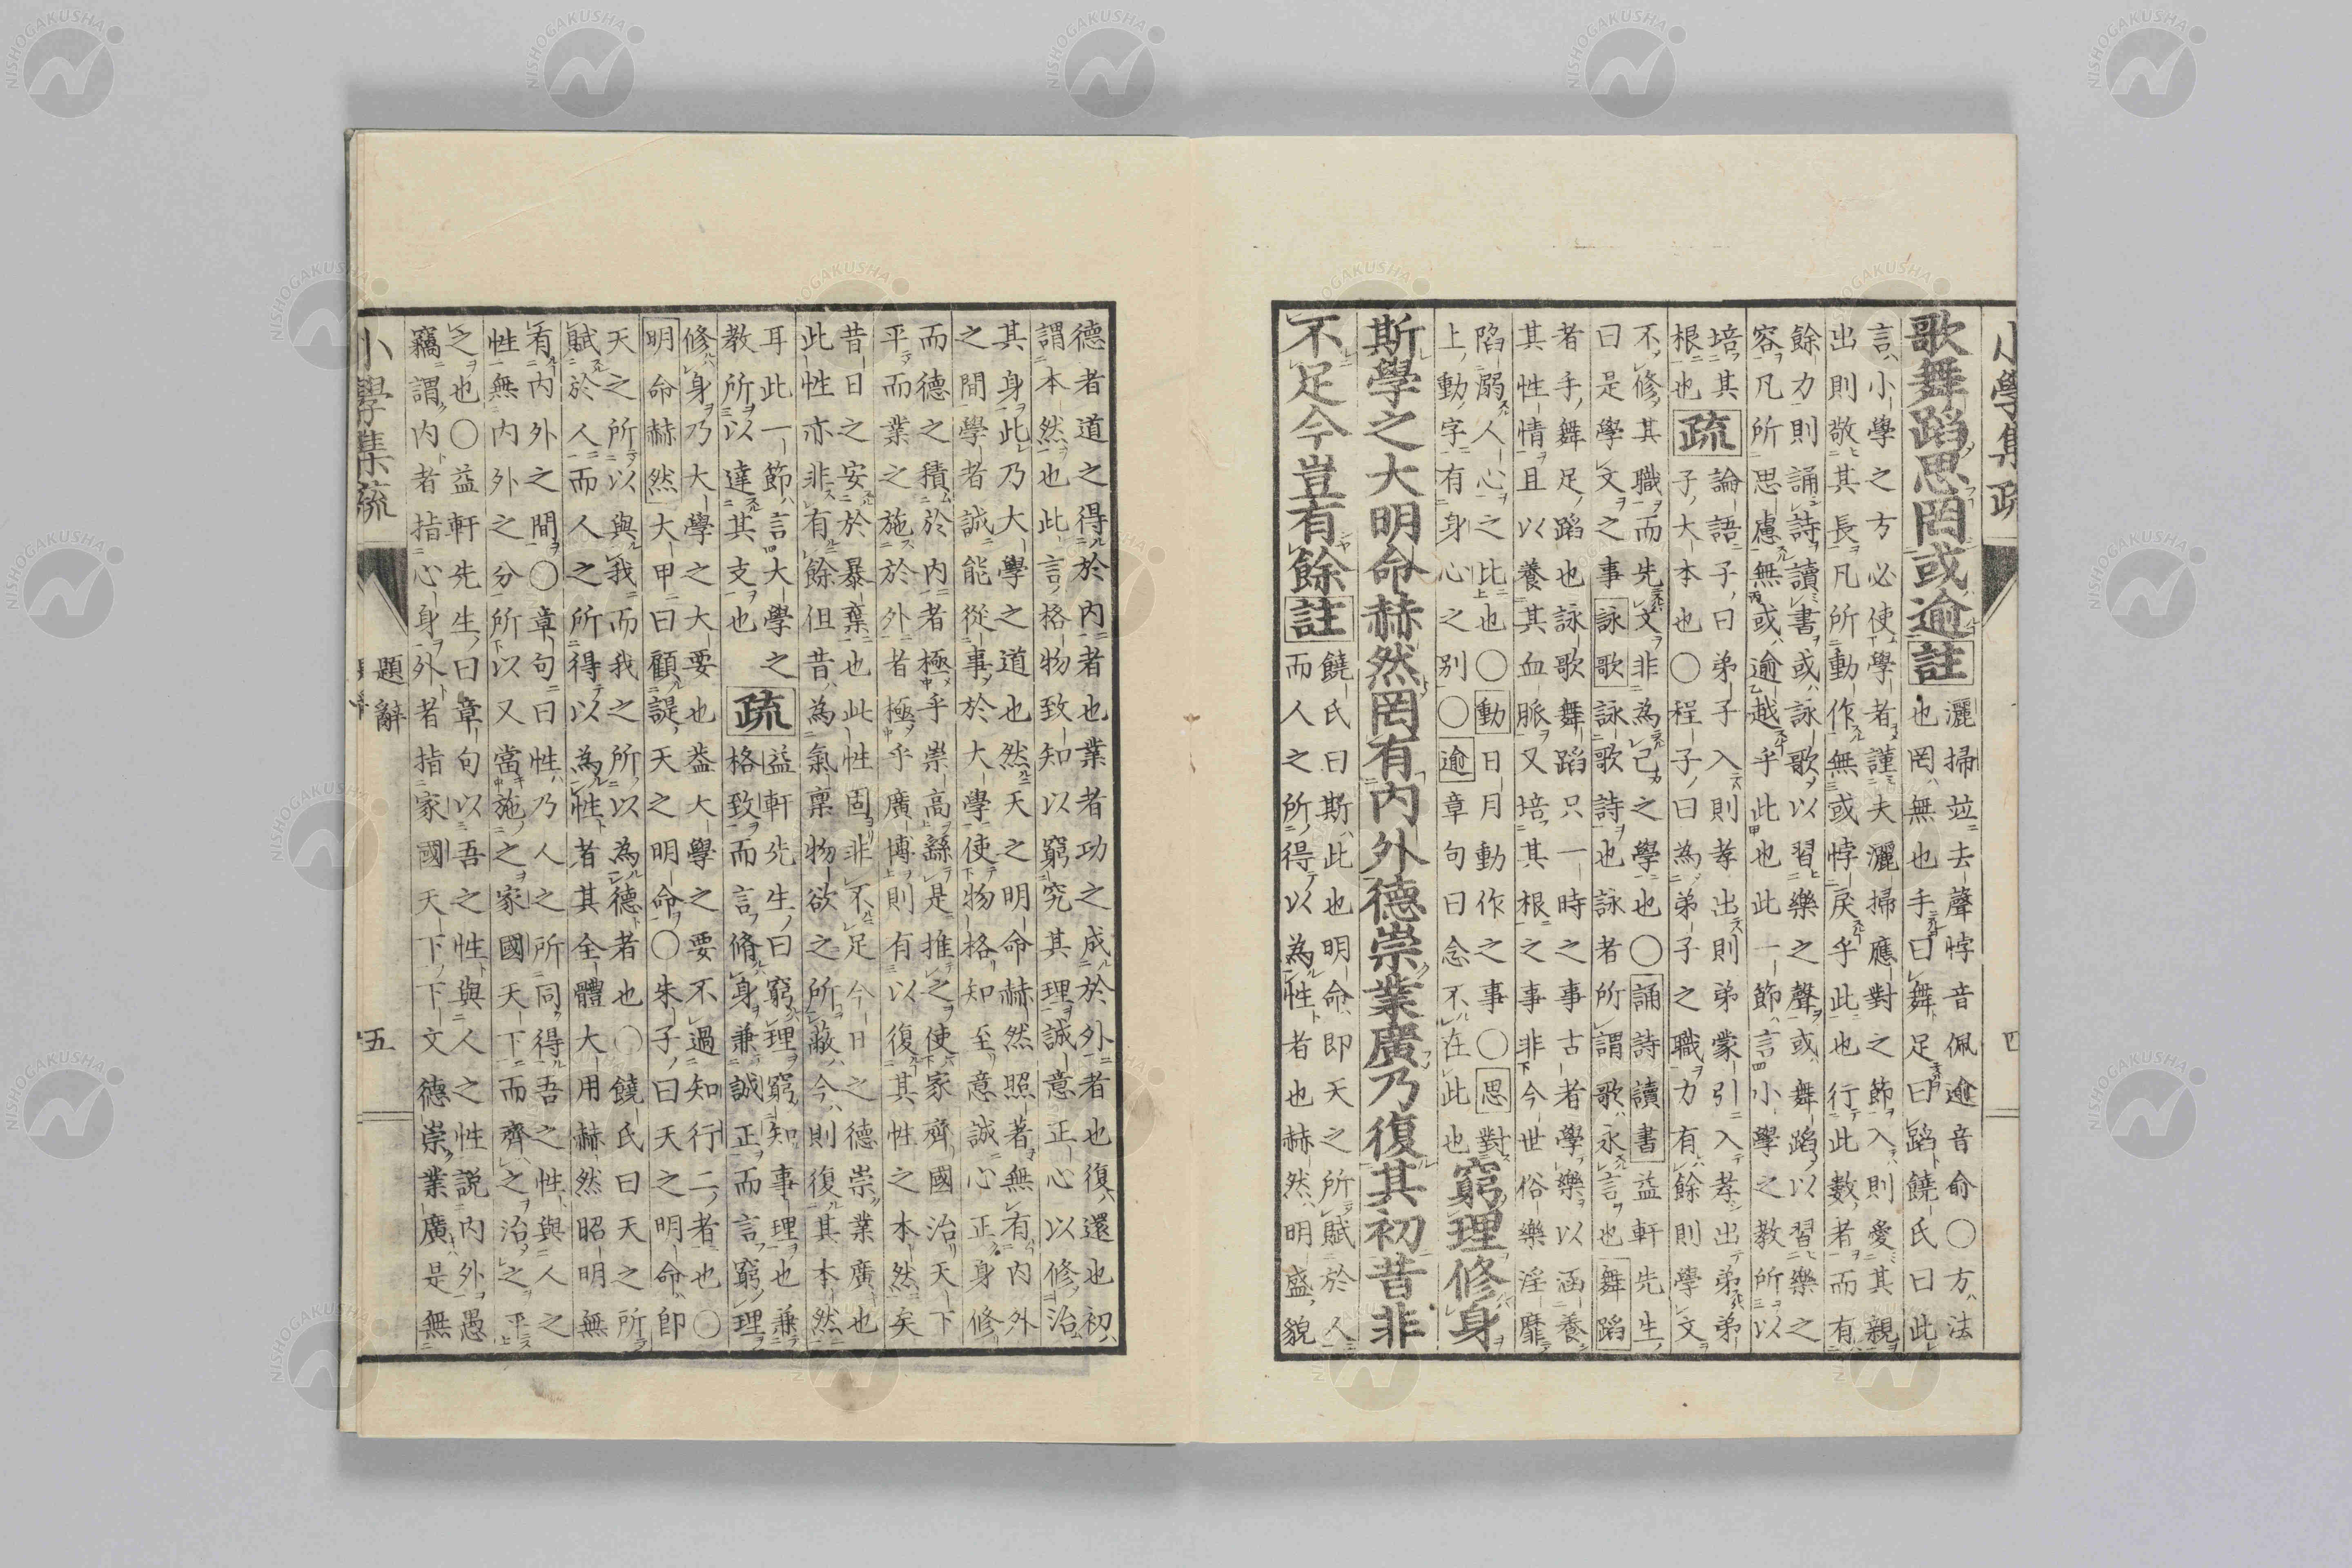 小學集疏 四
歌舞蹈思罔或逾註
灑掃竝去聲悖音佩逾音俞〇方法
也罔無也手曰舞足曰蹈饒氏曰此
言小學之方必使學者謹夫灑掃應對之節入則愛其親
出則敬其長凡所動作無或悖戾乎此也行此數者而有
餘力則誦詩讀書或詠歌以習樂之聲或舞蹈以習樂之
容凡所思慮無或逾越乎此也此一節言小學之教所以
培其
根也
疏
論語子曰弟子入則孝出則弟蒙引入孝出弟弟
子大本也〇程子曰為弟子之職力有餘則學文
不修其職而先文非為己之學也〇誦詩讀書益軒先生
曰是學文之事詠歌詠歌詩也詠者所謂歌永言也舞蹈
者手舞足蹈也詠歌舞蹈只一時之事古者學樂以涵養
其性情且以養其血脈又培其根之事非今世俗樂淫靡
陷溺人心之比也〇動日月動作之事〇思對
上動字有身心之別〇逾章句曰念不在此也
窮理修身
斯學之大明命赫然罔有內外德崇業廣乃復其初昔非
不足今豈有餘註
饒氏曰斯此也明命即天之所賦於人
而人之所得以為性者也赫然明盛貌
德者道之得於內者也業者功之成於外者也復還也初
謂本然也此言格物致知以窮究其理誠意正心以修治
其身此乃大學之道也然天之明命赫然照著無有內外
之間學者誠能從事於大學使物格知至意誠心正身修
而德之積於內者極乎崇高繇是推之使家齊國治天下
平而業之施於外者極乎廣博則有以復其性之本然矣
昔日之安於暴棄也此性固非不足今日之德崇業廣也
此性亦非有餘但昔為氣稟物欲之所蔽今則復其本然
耳此一節言大學之
教所以達其支也
疏
益軒先生曰窮理窮知事理也兼
格致而言脩身兼誠正而言窮理
修身乃大學之大要也葢大學之要不過知行二者也〇
明命赫然大甲曰顧諟天之明命〇朱子曰天之明命即
天之所以與我而我之所以為德者也〇饒氏曰天之所
賦於人而人之所得以為性者其全體大用赫然昭明無
有內外之間〇章句曰性乃人之所同得吾之性與人之
性無內外之分所以又當施之家國天下而齊之治之平
之也〇益軒先生曰章句以吾之性與人之性說內外愚
竊謂內者指心身外者指家國天下下文德崇業廣是無
小學集疏 題辭 五